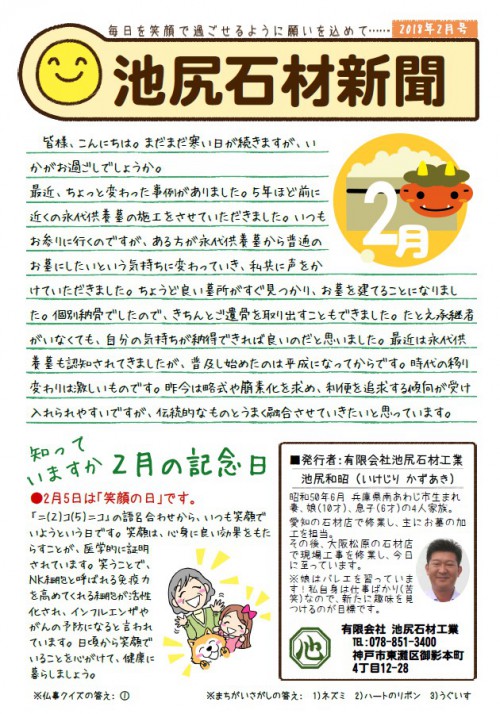 毎日を笑顔で過ごせるように願いを込めて……
2018年2月号
池尻石材新聞
皆様、こんにちは。まだまだ寒い日が続きますが、い
かがお過ごしでしょうか。
最近、ちょっと変わった事例がありました。5年ほど前に
近くの永代供養墓の施工をさせていただきました。いつも
お参りに行くのですが、ある方が永代供養墓から普通の
お墓にしたいという気持ちに変わっていき、私共に声をか
けていただきました。ちょうど良い墓所がすぐ見つかり、お墓を建てることになりまし
た。個別納骨でしたので、きちんとご遺骨を取り出すこともできました。たとえ承継者
がいなくても、自分の気持ちが納得できれば良いのだと思いました。最近は永代供
養墓も認知されてきましたが、普及し始めたのは平成になってからです。時代の移り
変わりは激しいものです。昨今は略式や簡素化を求め、利便を追求する傾向が受け
入れられやすいですが、伝統的なものとうまく融合させていきたいと思っています。
2月
知って
いますか 2月の記念日
●2月5日は「笑顔の日」です。
「ニ(2)コ(5)ニコ」の語呂合わせから、いつも笑顔で
いようという日です。笑顔は、心身に良い効果をもた
らすことが、医学的に証明
されています。笑うことで、
NK細胞と呼ばれる免疫力
を高めてくれる細胞が活性
化され、インフルエンザや
がんの予防になると言われ
ています。日頃から笑顔で
いることを心がけて、健康に
暮らしましょう。
■発行者:有限会社池尻石材工業
池尻和昭(いけじり かずあき)
昭和50年6月 兵庫県南あわじ市生まれ
妻、娘(10才)、息子(6才)の4人家族。
愛知の石材店で修業し、主にお墓の加
工を担当。
その後、大阪松原の石材店
で現場工事を修業し、今日
に至っています。
※娘はバレエを習っていま
す!私自身は仕事ばかり(苦
笑)なので、新たに趣味を見
つけるのが目標です。
池
有限会社 池尻石材工業
TEL:078-851-3400
神戸市東灘区御影本町
4丁目12-28
※仏事クイズの答え: ①
※まちがいさがしの答え: 1)ネズミ 2)ハートのリボン 3)うぐいす